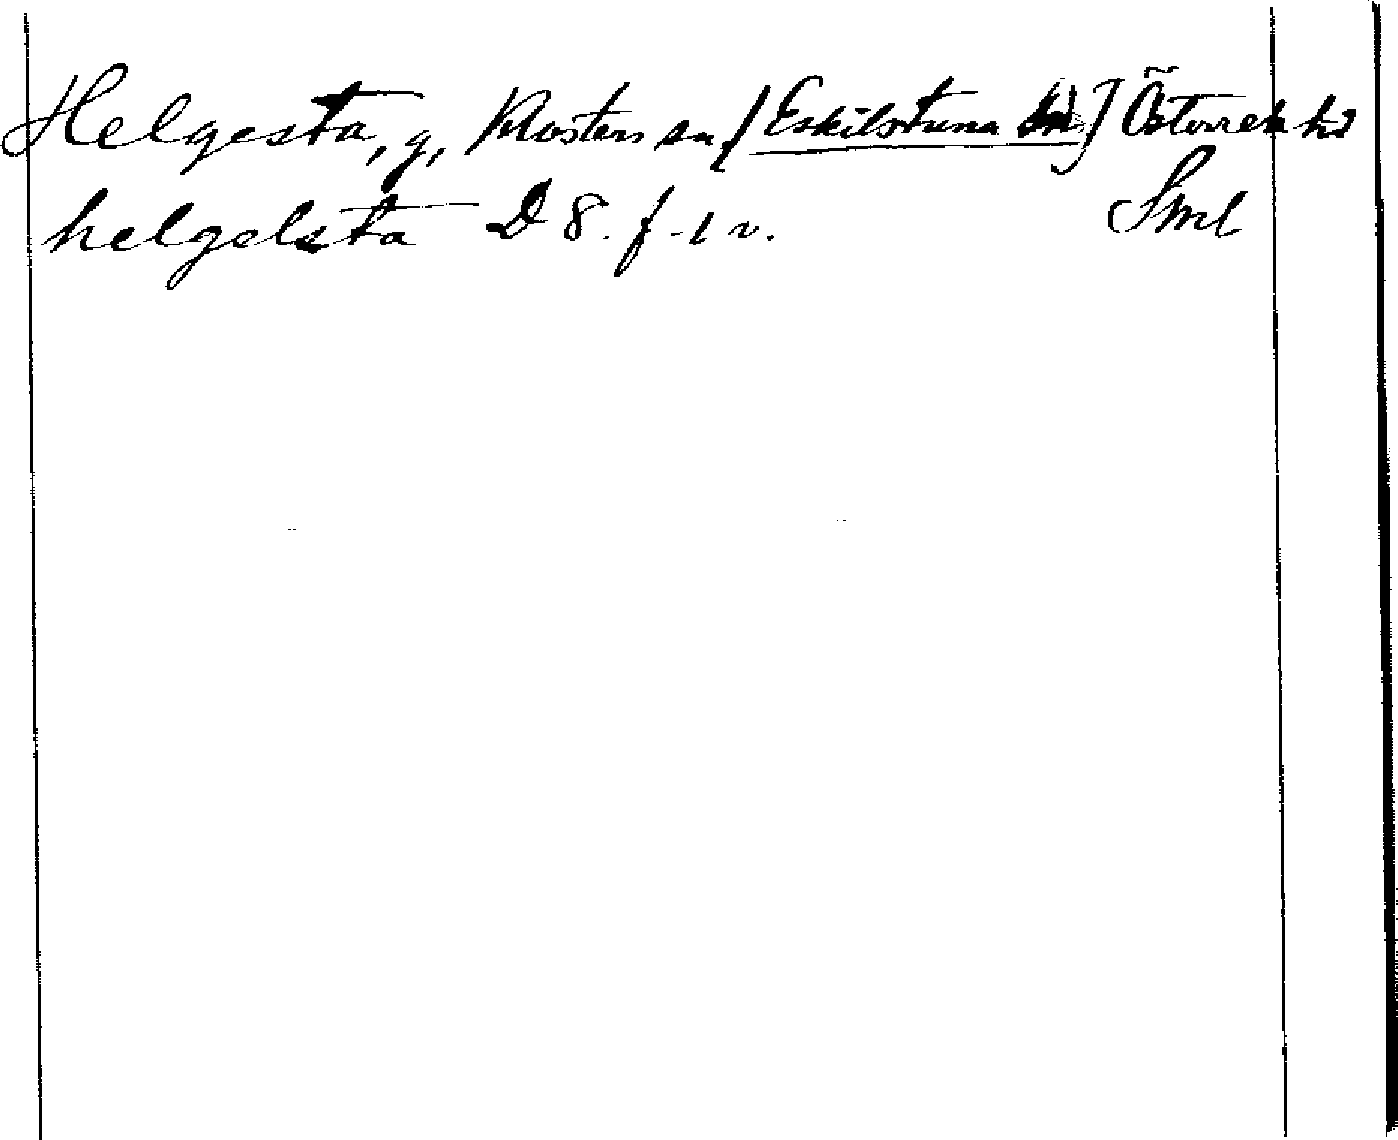 Helgesta, g, Klosters sn, [Eskilstuna sn] Österrek hd
helgelsta D 8. f. 1 v. Sml